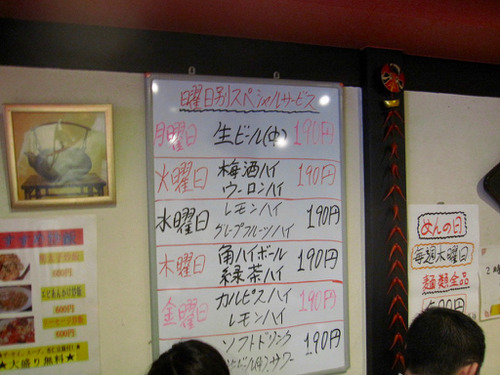 曜日別スペシャルサービス
月曜日 生ビール(中) 190円
火曜日 梅酒ハイ
ウーロンハイ 190円
水曜日 レモンハイ
グレープフルーツハイ 190円
木曜日 角ハイボール
緑茶ハイ 190円
金曜日 カルピスハイ
レモンハイ 190円
ソフトドリンク
サワー 190円
600円
600円
600円
★大盛り無料★
めんの日
毎週木曜日
麺類全品